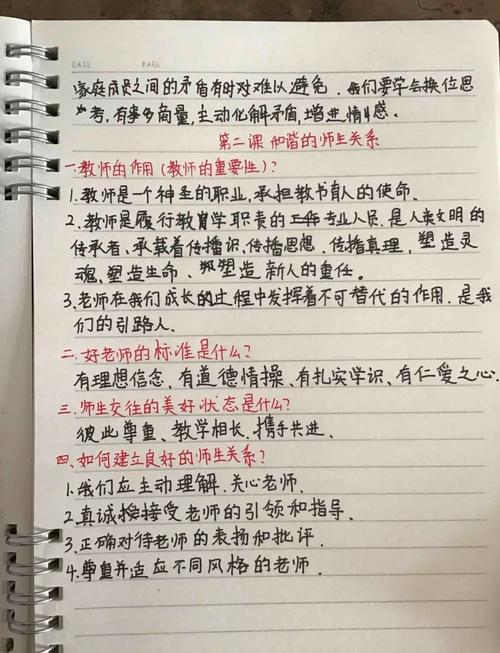 DATE PAGE
家庭成员之间的矛盾有时对难以避免。我们要学会换位思
考,有事多商量,主动化解矛盾,增进情感。
第二课 和谐的师生关系
一.教师的作用(教师的重要性)?
1.教师是一个神圣的职业,承担教书育人的使命.
2.教师是履行教育学职责的工作专业人员.是人类文明的
传承者、承载着传播识.传播思想.传播真理,塑造灵
魂,塑造生命、塑造新人的重任。
3.老师在我们成长的过程中发挥着不可替代的作用.是我
们的引路人.
二.好老师的标准是什么?
有理想信念,有道德情操、有扎实学识、有仁爱之心.
三.师生交往的美好状态是什么?
彼此尊重、教学相长.携手共进.
四.如何建立良好的师生关系?
1.我们应主动理解.关心老师.
2.真诚接受老师的引领和指导.
3.正确对待老师的表扬和批评.
4.尊重并适应不同风格的老师.